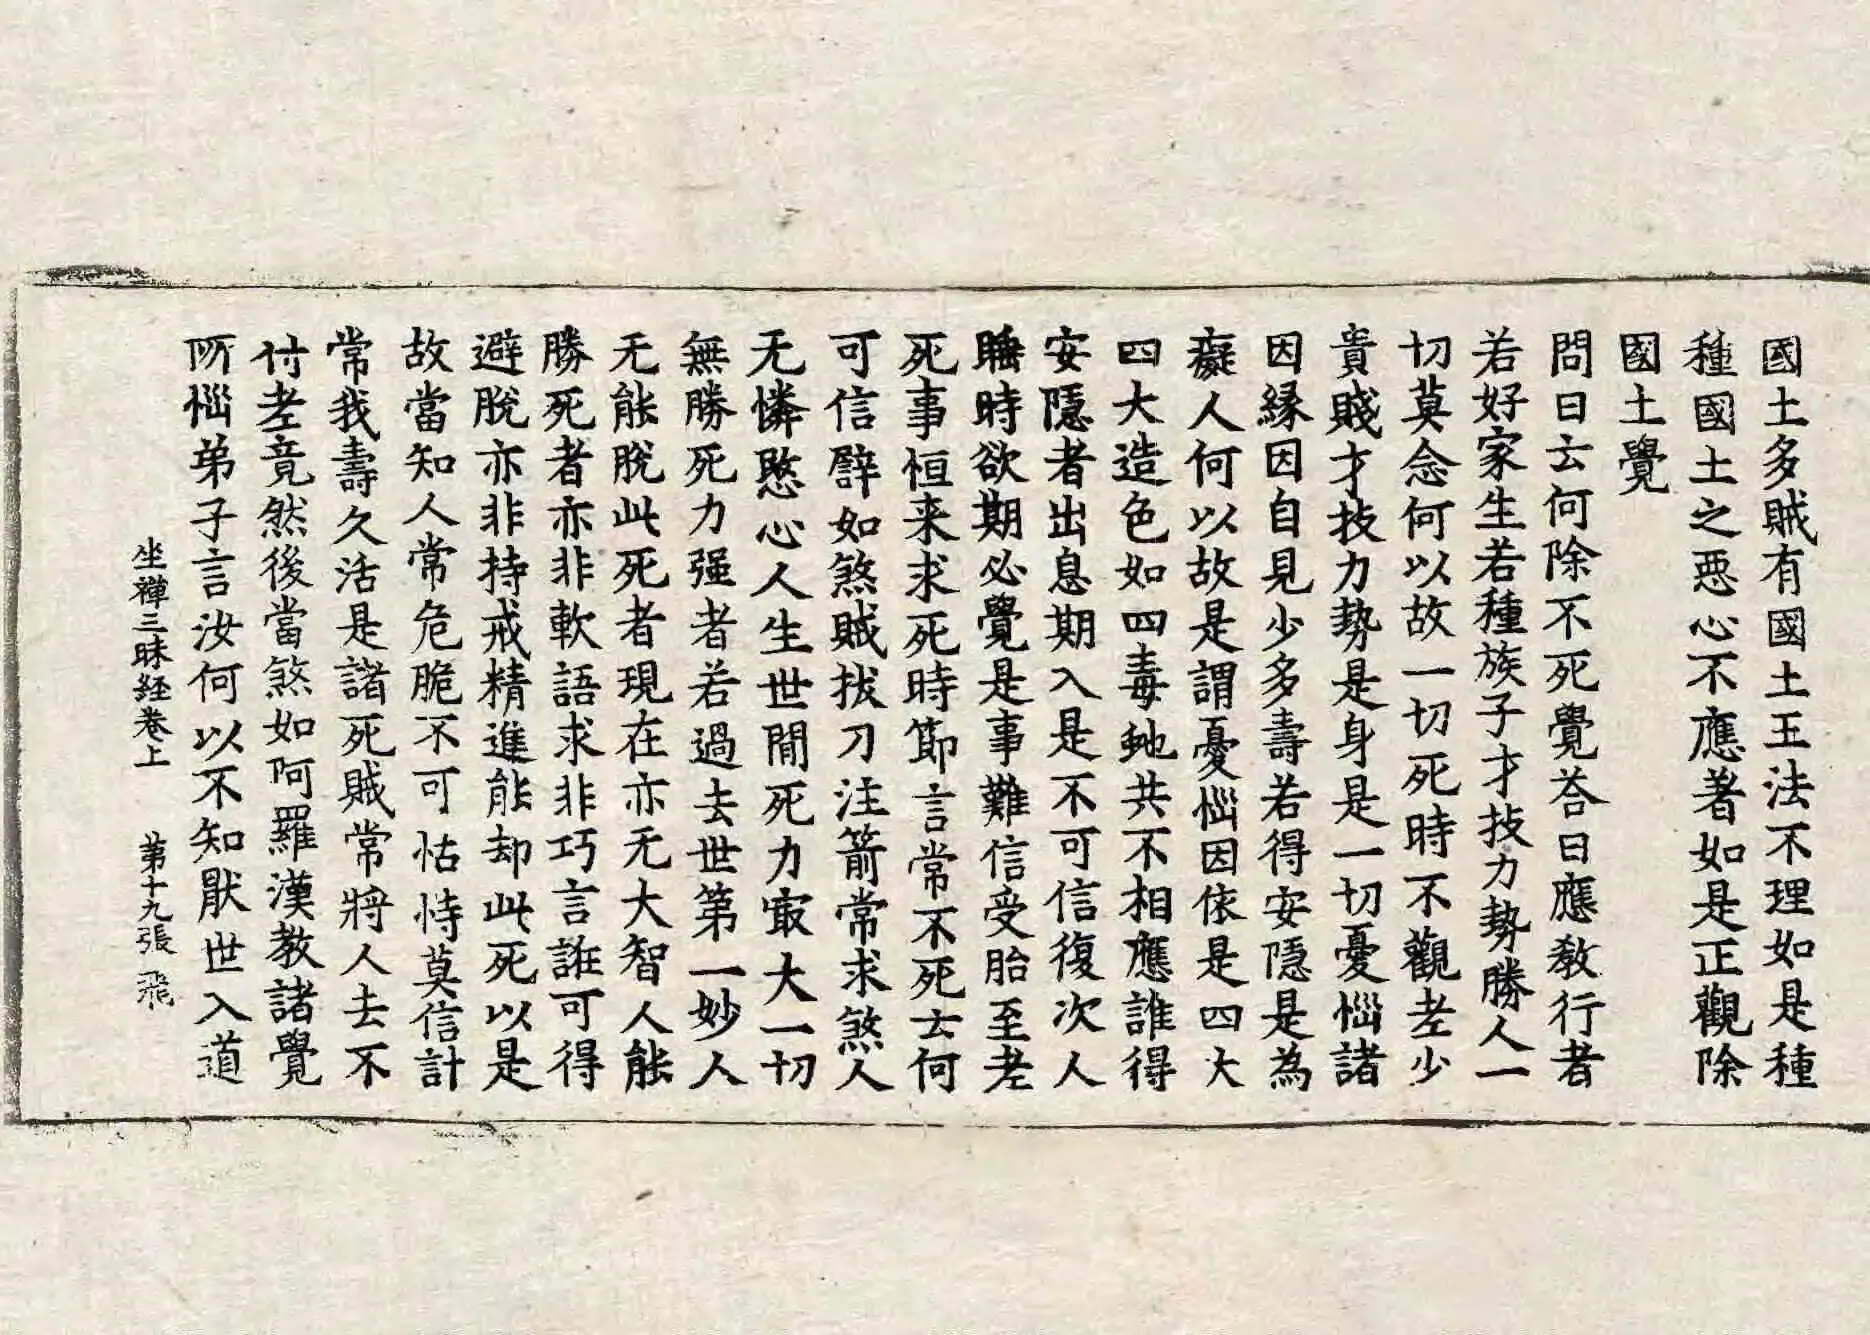 國土多賊有國土王法不理如是種
種國土之惡心不應著如是正觀除
國土覺
問曰云何除不死覺荅曰應教行者
若好家生若種族子才技力勢勝人一
切莫念何以故一切死時不觀老少
貴賤才技力勢是身是一切憂惱諸
因緣因自見少多壽若得安隱是為
癡人何以故是謂憂惱因依是四大
四大造色如四毒虵共不相應誰得
安隱者出息期入是不可信復次人
睡時欲期必覺是事難信受胎至老
死事恒来求死時節言常不死云何
可信譬如煞賊拔刀注箭常求煞人
无憐愍心人生世間死力㝡大一切
無勝死力强者若過去世第一妙人
无能脫此死者現在亦无大智人能
勝死者亦非軟語求非巧言誑可得
避脫亦非持戒精進能却此死以是
故當知人常危脆不可怙恃莫信計
常我壽久活是諸死賊常將人去不
付老竟然後當煞如阿羅漢教諸覺
所惱弟子言汝何以不知猒世入道
坐禪三昧経卷上 第十九張 飛